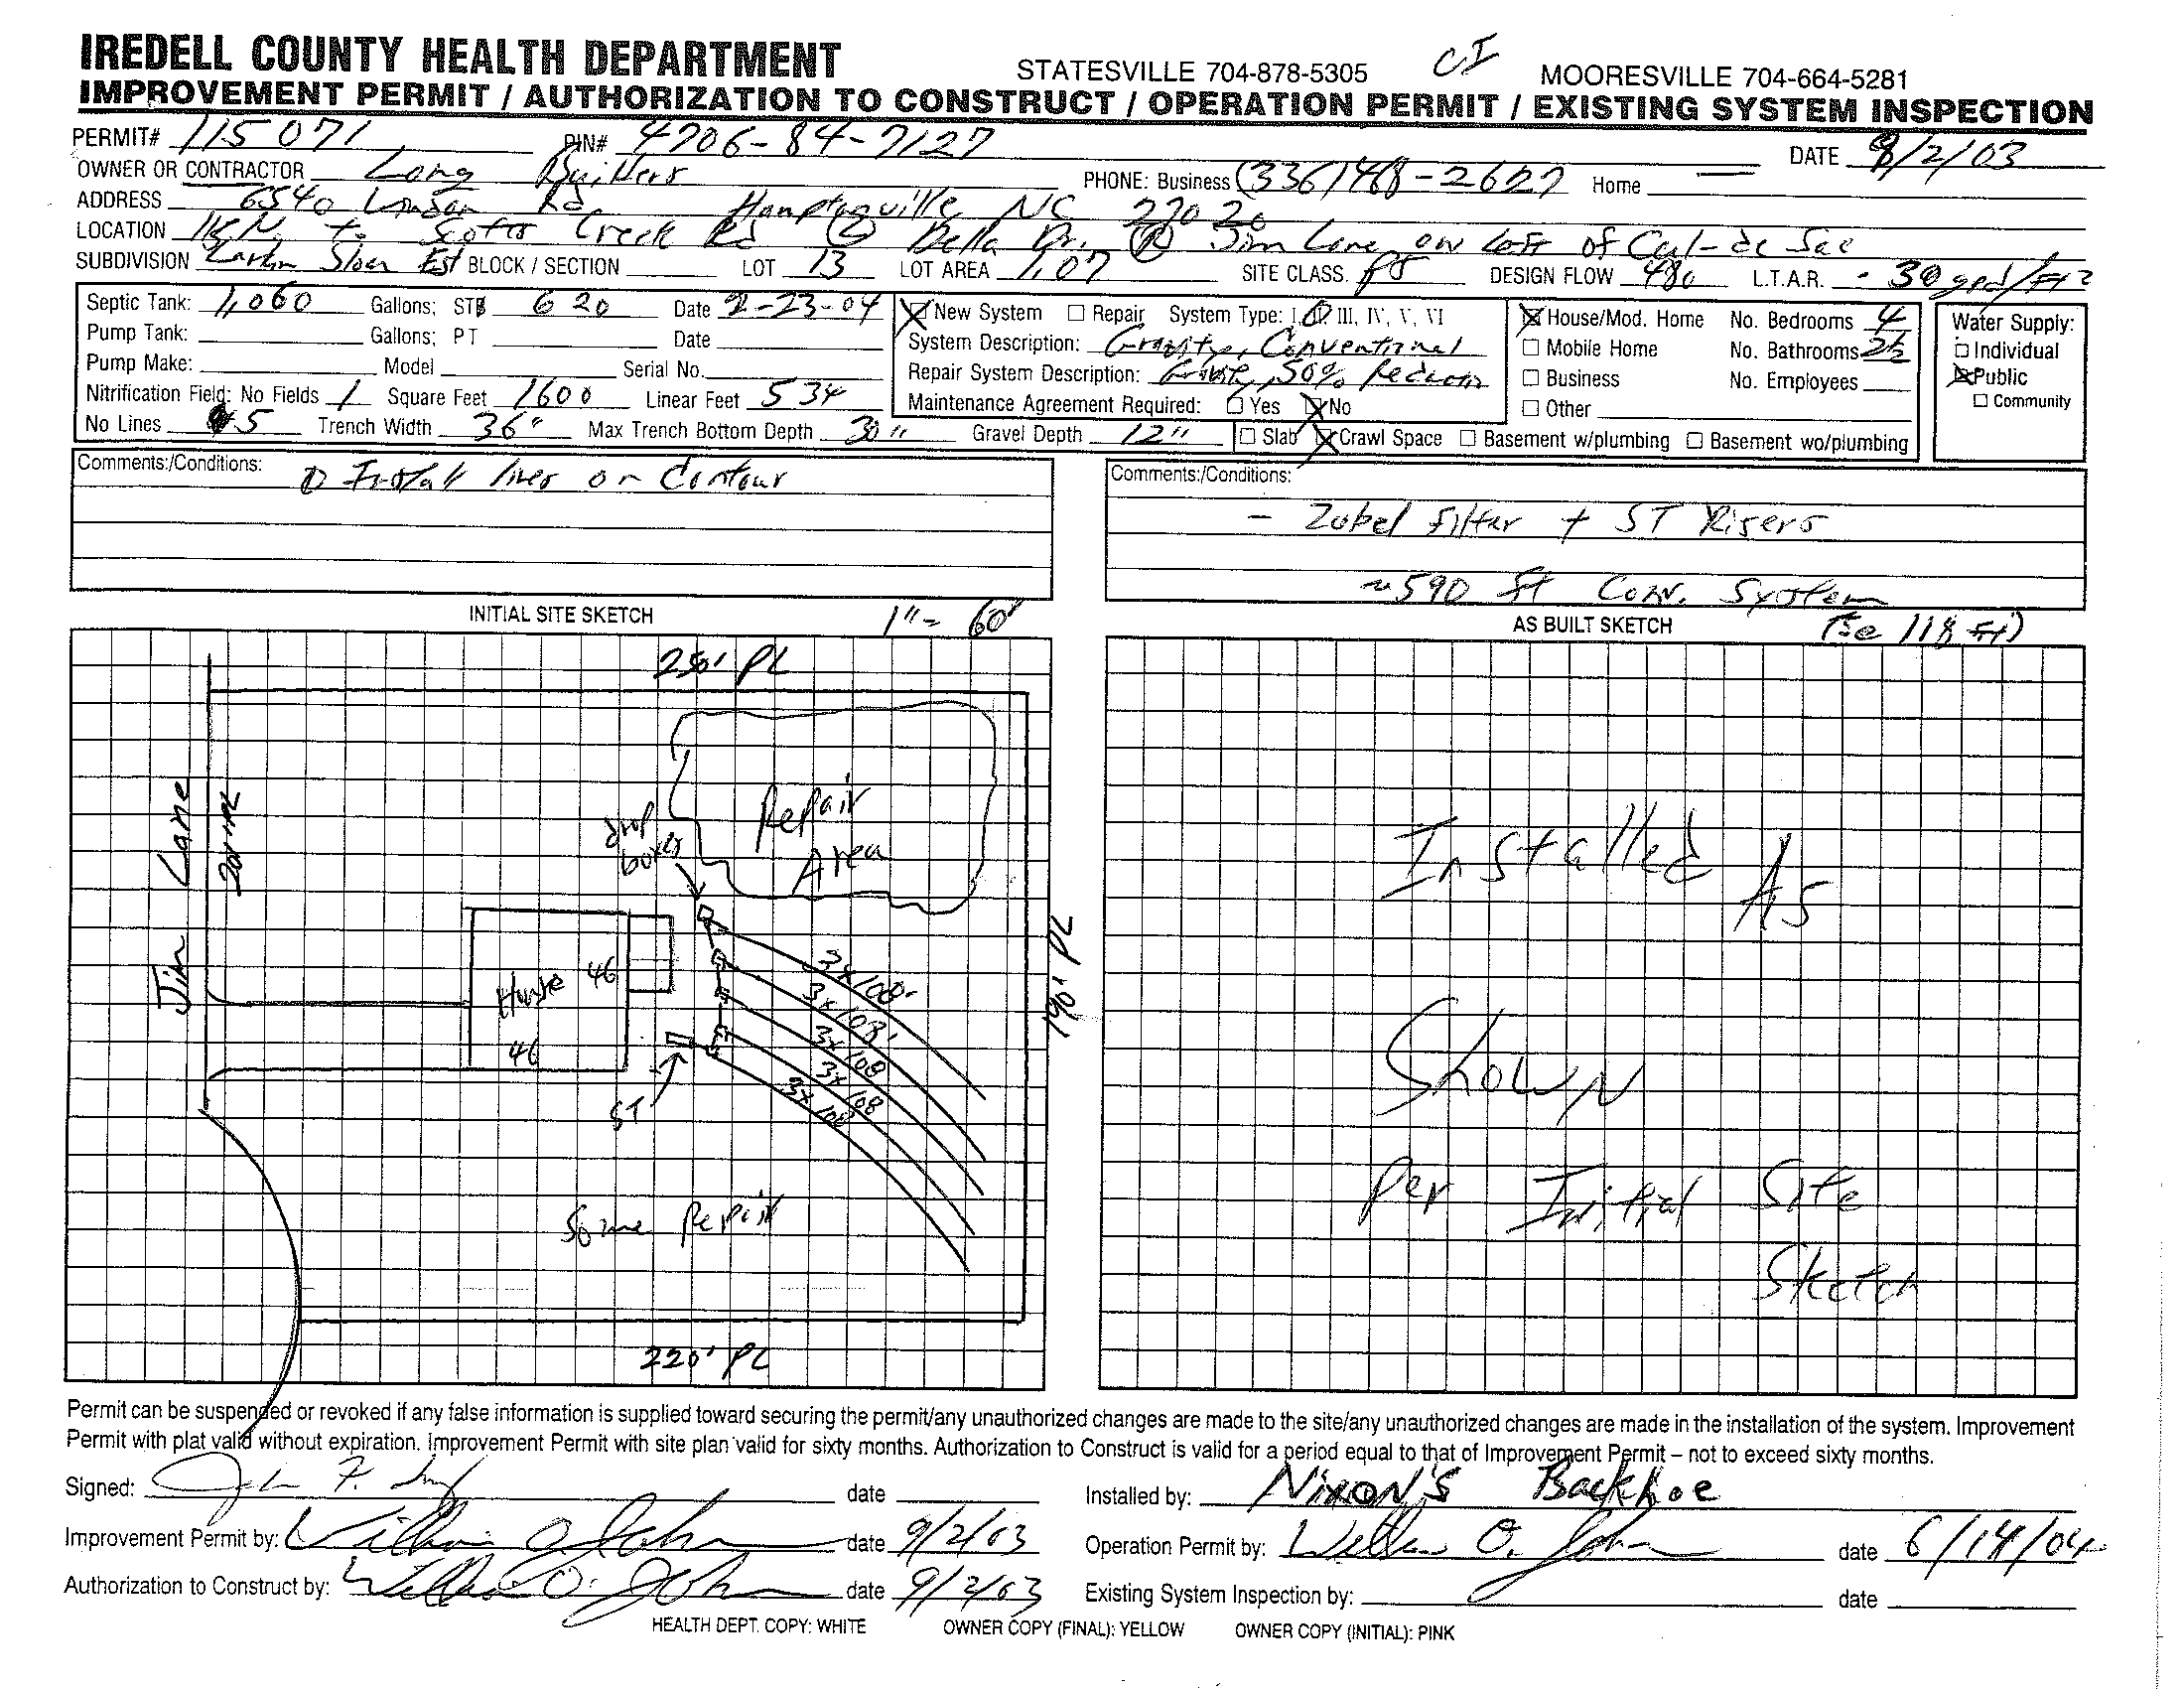 IREDELL COUNTY HEALTH DEPARTMENT
STATESVILLE 704-878-5305 CI MOORESVILLE 704-664-5281
IMPROVEMENT PERMIT / AUTHORIZATION TO CONSTRUCT / OPERATION PERMIT / EXISTING SYSTEM INSPECTION
PERMIT# 115071 PIN# 4706-84-7127 DATE 9/2/03
OWNER OR CONTRACTOR Long Builders PHONE: Business (336)468-2627 Home —
ADDRESS 6540 London Rd Hamptonville NC 27020
LOCATION 115 N. to Scotts Creek Rd (L) Bella Dr. (R) Jim Lane, on Left of Cul-de Sac
SUBDIVISION Sloan Est BLOCK / SECTION LOT 13 LOT AREA 1.07 SITE CLASS. PS DESIGN FLOW 480 L.T.A.R. .30 gpd/Ft2
Septic Tank: 1,060 Gallons; STB 620 Date 2-23-04
Pump Tank: Gallons; PT Date
Pump Make: Model Serial No.
Nitrification Field: No Fields 1 Square Feet 1600 Linear Feet 534
No Lines 5 Trench Width 36" Max Trench Bottom Depth 30" Gravel Depth 12"
New System Repair System Type: I, II, III, IV, V, VI
System Description: Gravity, Conventional
Repair System Description: Gravity, 50% Reduction
Maintenance Agreement Required: Yes No
Slab Crawl Space Basement w/plumbing Basement wo/plumbing
House/Mod. Home No. Bedrooms 4
Mobile Home No. Bathrooms 2½
Business No. Employees
Other
Water Supply:
Individual
Public
Community
Comments:/Conditions: ① Install lines on Contour
Comments:/Conditions:
- Zabel filter + ST Risers
~590 ft Conv. System
INITIAL SITE SKETCH 1"= 60'
AS BUILT SKETCH (5@118 ft)
250' PL
Jim Lane
Repair
Area
drop
boxes
House 46
46
190' PL
3x108'
3x108'
3x108
3x108
3x108
ST
Some Repair
220' PL
Installed As
Shown
Per Initial Site
Sketch
Permit can be suspended or revoked if any false information is supplied toward securing the permit/any unauthorized changes are made to the site/any unauthorized changes are made in the installation of the system. Improvement
Permit with plat valid without expiration. Improvement Permit with site plan valid for sixty months. Authorization to Construct is valid for a period equal to that of Improvement Permit – not to exceed sixty months.
Signed: John F. date
Installed by: Nixon's Backhoe
Improvement Permit by: William O. date 9/2/03
Operation Permit by: William O. date 6/14/04
Authorization to Construct by: William O. date 9/2/03
Existing System Inspection by: date
HEALTH DEPT. COPY: WHITE OWNER COPY (FINAL): YELLOW OWNER COPY (INITIAL): PINK